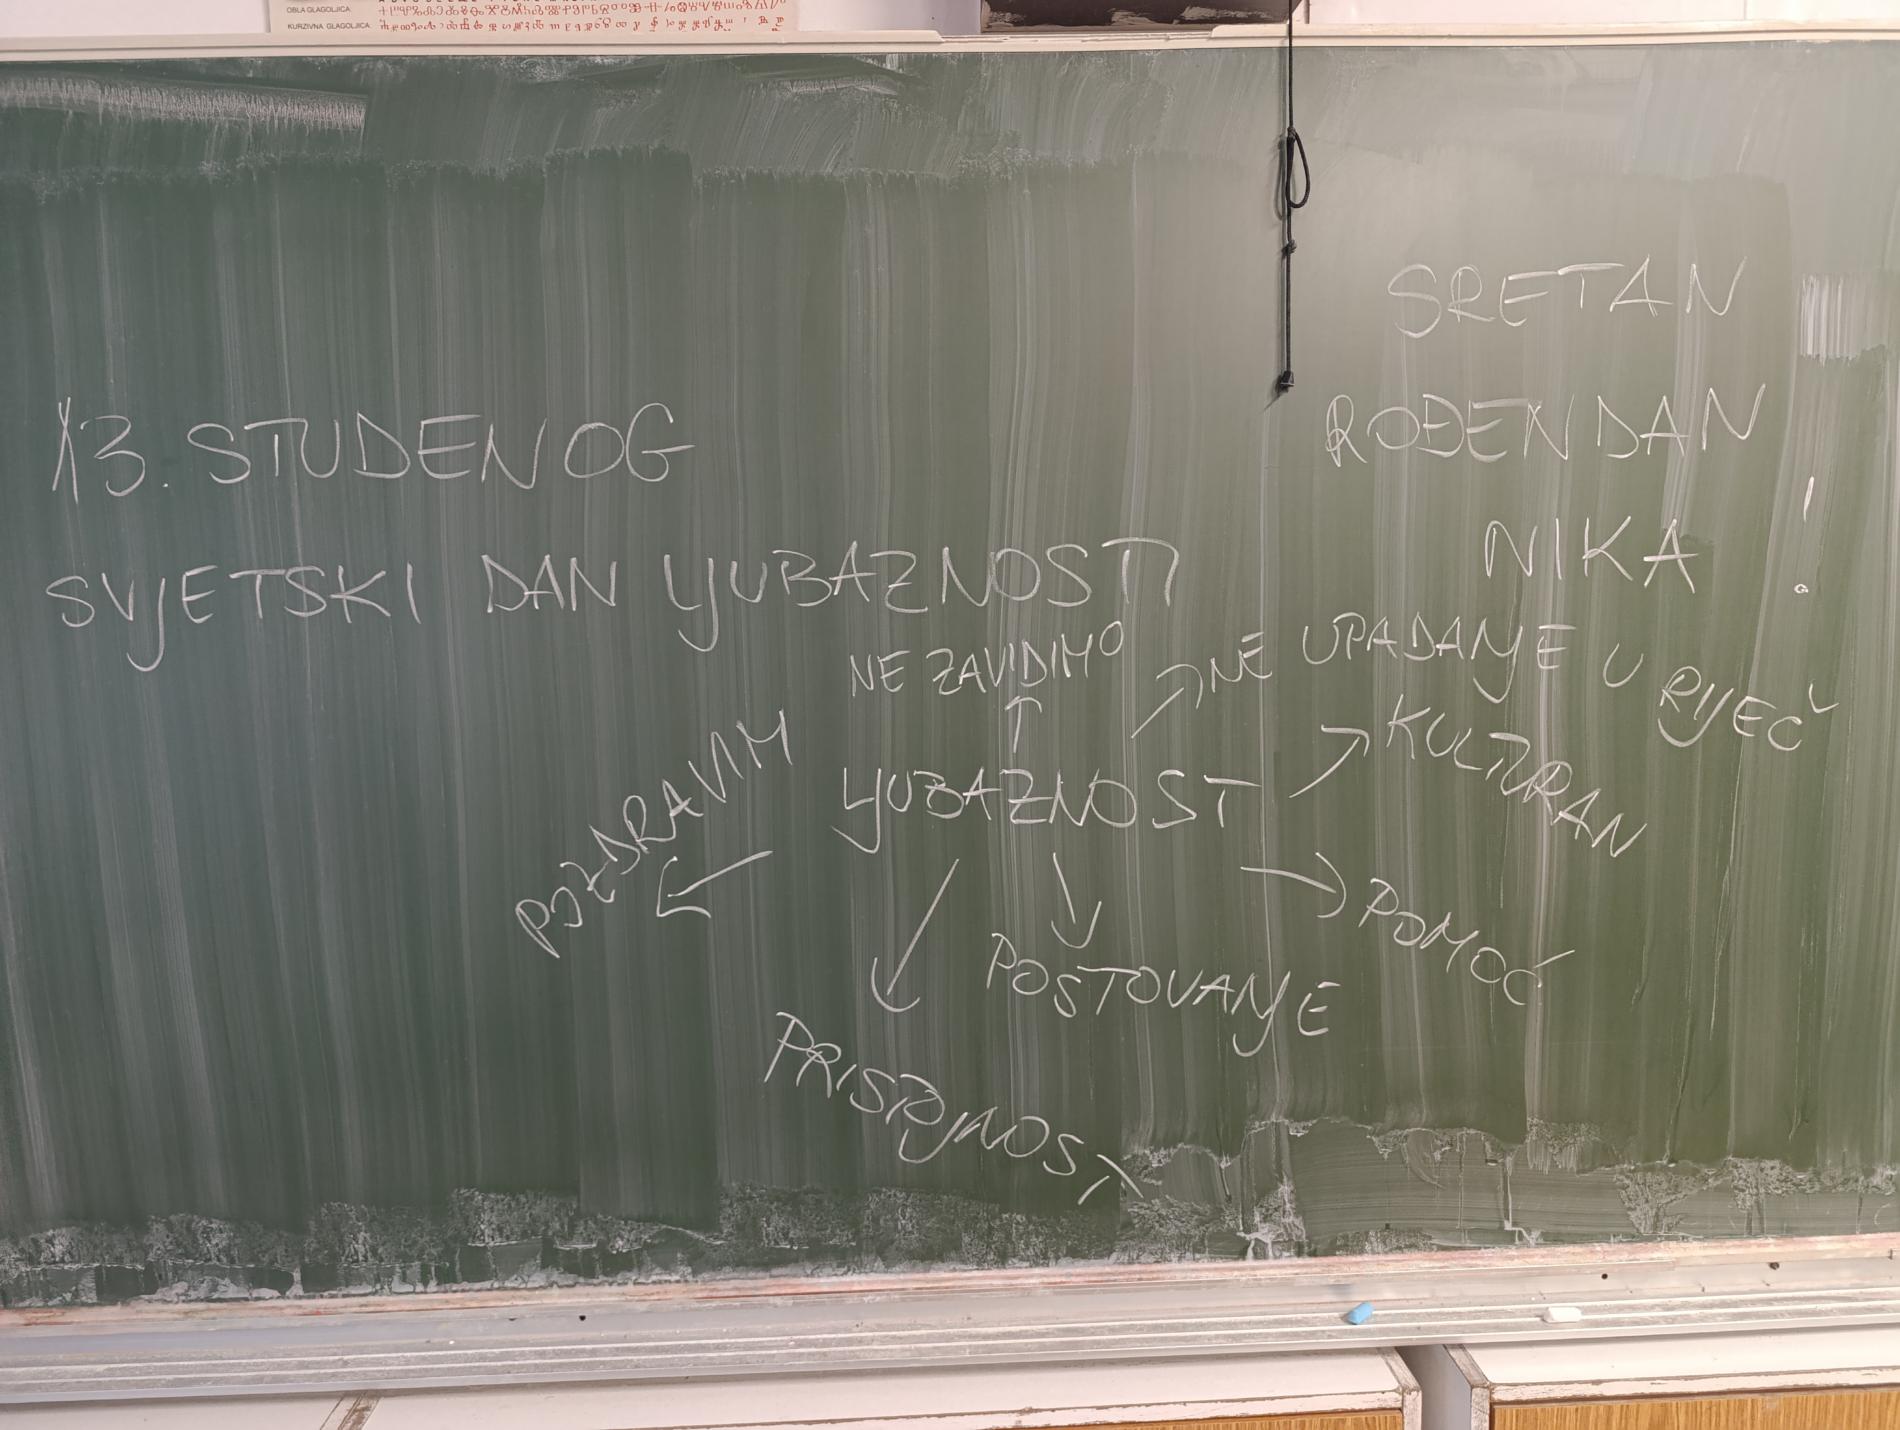 OBLA GLAGOLJICA
KURZIVNA GLAGOLJICA
13. STUDENOG
SVJETSKI DAN LJUBAZNOSTI
SRETAN
ROĐENDAN
NIKA!
NE ZAVIDIMO
NE UPADANJE U RIJEČ
KULTURAN
POZDRAVIM
LJUBAZNOST
POMOĆ
POSTOVANJE
PRISTOJNOST